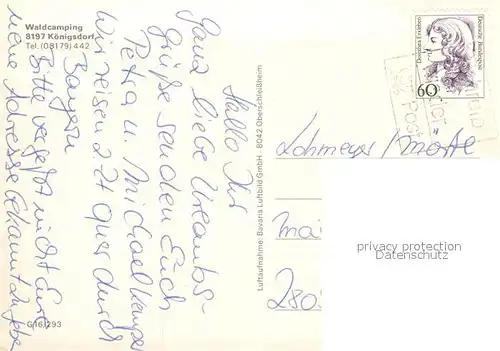 Waldcamping
8197 Königsdorf
Tel. (08179) 442
Hallo Ihr
Ganz liebe Urlaubs-
grüße senden Euch
Petra u. Michael
Wir reisen z. Zt quer durch
Bayern
Bitte vergeßt nicht Eure
neue Adresse bekannt
G 16/293
Luftaufnahme: Bavaria Luftbild GmbH - 8042 Oberschleißheim
Dorothea Erxleben
Deutsche Bundespost
60
POST
Lohmeyer
280
privacy protection
Datenschutz